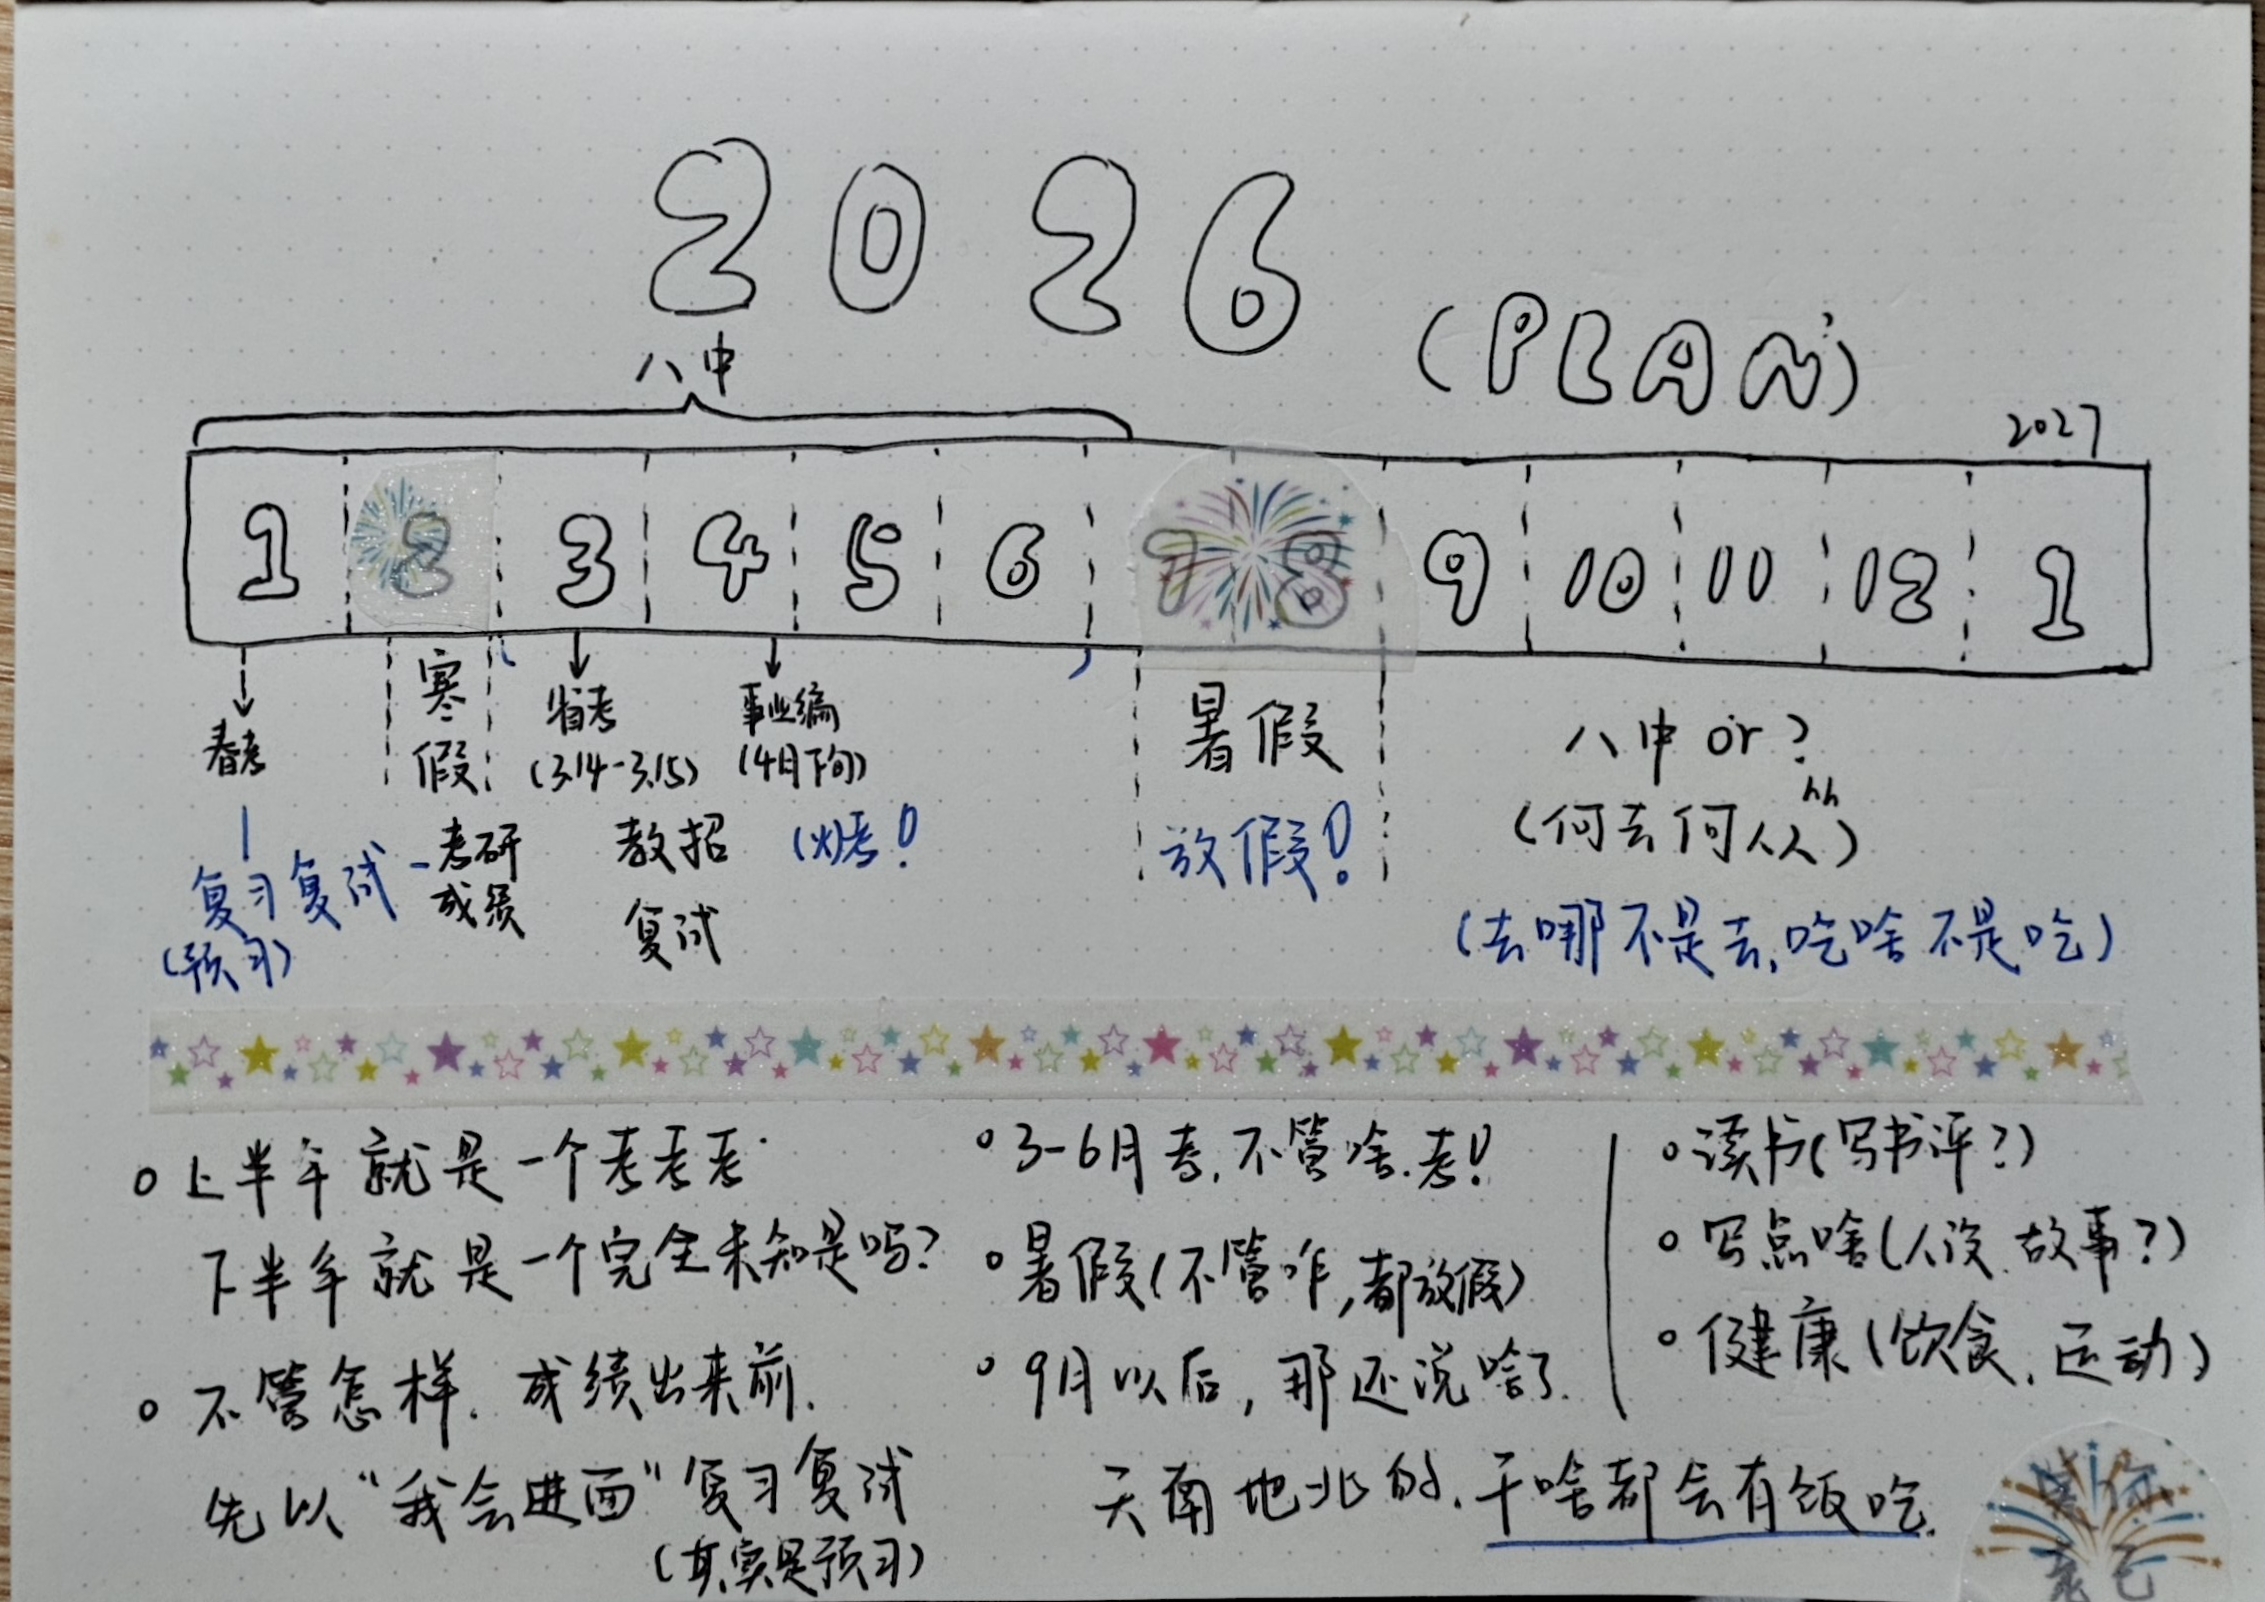 2026
(PLAN)
八中
2027
1 2 3 4 5 6 7 8 9 10 11 12 1
春考
寒假
省考
(3.14-3.15)
事业编
(4月下旬)
暑假
八中 or ?
(何去何从) hh
复习复试-考研成绩
(预习)
教招
复试
放假!
(去哪不是去,吃啥不是吃)
上半年就是一个考考考.
下半年就是一个完全未知是吗?
不管怎样.成绩出来前.
先以“我会进面”复习复试
(其实是预习)
3-6月考,不管啥.考!
暑假(不管咋,都放假)
9月以后,那还说啥了.
天南地北的.干啥都会有饭吃.
读书(写书评?)
写点啥(人设.故事?)
健康(饮食.运动)